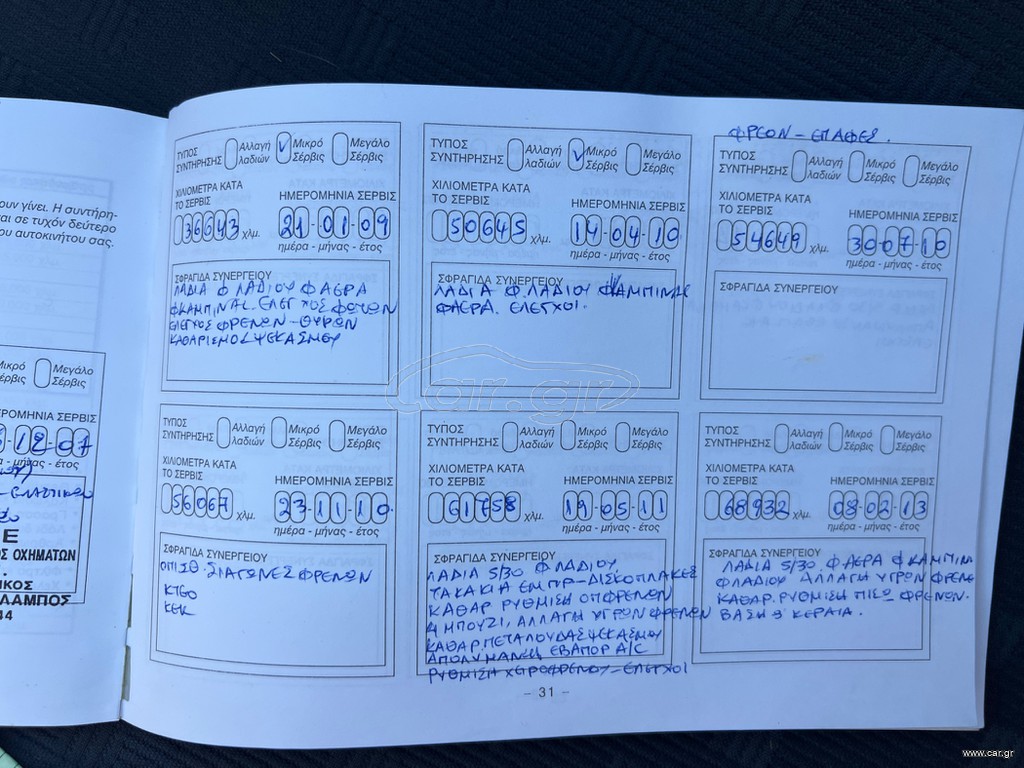 ουν γίνει. Η συντήρη-
αι σε τυχόν δεύτερο
ου αυτοκινήτου σας.
Μικρό Σέρβις Μεγάλο Σέρβις
ΡΟΜΗΝΙΑ ΣΕΡΒΙΣ
12-07
- μήνας - έτος
Ε
ΟΣ ΟΧΗΜΑΤΩΝ
ΙΚΟΣ
ΛΑΜΠΟΣ
44
ΤΥΠΟΣ ΣΥΝΤΗΡΗΣΗΣ Αλλαγή λαδιών Μικρό Σέρβις Μεγάλο Σέρβις
ΧΙΛΙΟΜΕΤΡΑ ΚΑΤΑ ΤΟ ΣΕΡΒΙΣ
36643 χλμ.
ΗΜΕΡΟΜΗΝΙΑ ΣΕΡΒΙΣ
21-01-09
ημέρα - μήνας - έτος
ΣΦΡΑΓΙΔΑ ΣΥΝΕΡΓΕΙΟΥ
ΛΑΔΙΑ Φ ΛΑΔΙΟΥ Φ ΑΕΡΑ
ΦΚΑΜΠΙΝΑΣ. ΕΛΕΓΧΟΣ ΦΩΤΩΝ
ΕΛΕΓΧΟΣ ΦΡΕΝΩΝ - ΘΥΡΩΝ
ΚΑΘΑΡΙΣΜΟΣ ΨΕΚΑΣΜΟΥ
ΤΥΠΟΣ ΣΥΝΤΗΡΗΣΗΣ Αλλαγή λαδιών Μικρό Σέρβις Μεγάλο Σέρβις
ΧΙΛΙΟΜΕΤΡΑ ΚΑΤΑ ΤΟ ΣΕΡΒΙΣ
50645 χλμ.
ΗΜΕΡΟΜΗΝΙΑ ΣΕΡΒΙΣ
14-04-10
ημέρα - μήνας - έτος
ΣΦΡΑΓΙΔΑ ΣΥΝΕΡΓΕΙΟΥ
ΛΑΔΙΑ Φ. ΛΑΔΙΟΥ ΦΚΑΜΠΙΝΑΣ
ΦΑΕΡΑ. ΕΛΕΓΧΟΙ.
ΦΡΕΟΝ - ΕΠΑΦΕΣ.
ΤΥΠΟΣ ΣΥΝΤΗΡΗΣΗΣ Αλλαγή λαδιών Μικρό Σέρβις Μεγάλο Σέρβις
ΧΙΛΙΟΜΕΤΡΑ ΚΑΤΑ ΤΟ ΣΕΡΒΙΣ
54649 χλμ.
ΗΜΕΡΟΜΗΝΙΑ ΣΕΡΒΙΣ
30-07-10
ημέρα - μήνας - έτος
ΣΦΡΑΓΙΔΑ ΣΥΝΕΡΓΕΙΟΥ
car.gr
ΤΥΠΟΣ ΣΥΝΤΗΡΗΣΗΣ Αλλαγή λαδιών Μικρό Σέρβις Μεγάλο Σέρβις
ΧΙΛΙΟΜΕΤΡΑ ΚΑΤΑ ΤΟ ΣΕΡΒΙΣ
56067 χλμ.
ΗΜΕΡΟΜΗΝΙΑ ΣΕΡΒΙΣ
23-11-10
ημέρα - μήνας - έτος
ΣΦΡΑΓΙΔΑ ΣΥΝΕΡΓΕΙΟΥ
ΟΠΙΣΘ. ΣΙΑΓΩΝΕΣ ΦΡΕΝΩΝ
ΚΤΕΟ
ΚΕΚ
ΤΥΠΟΣ ΣΥΝΤΗΡΗΣΗΣ Αλλαγή λαδιών Μικρό Σέρβις Μεγάλο Σέρβις
ΧΙΛΙΟΜΕΤΡΑ ΚΑΤΑ ΤΟ ΣΕΡΒΙΣ
61758 χλμ.
ΗΜΕΡΟΜΗΝΙΑ ΣΕΡΒΙΣ
19-05-11
ημέρα - μήνας - έτος
ΣΦΡΑΓΙΔΑ ΣΥΝΕΡΓΕΙΟΥ
ΛΑΔΙΑ 5/30 Φ ΛΑΔΙΟΥ
ΤΑΚΑΚΙΑ ΕΜΠΡ-ΔΙΣΚΟΠΛΑΚΕΣ
ΚΑΘΑΡ. ΡΥΘΜΙΣΗ ΟΠΦΡΕΝΩΝ
4 ΜΠΟΥΖΙ, ΑΛΛΑΓΗ ΥΓΡΩΝ ΦΡΕΝΩΝ
ΚΑΘΑΡ. ΠΕΤΑΛΟΥΔΑΣ ΨΕΚΑΣΜΟΥ
ΑΠΟΛΥΜΑΝΣΗ ΕΒΑΠΟΡ A/C
ΡΥΘΜΙΣΗ ΧΕΙΡΟΦΡΕΝΟΥ - ΕΛΕΓΧΟΙ
ΤΥΠΟΣ ΣΥΝΤΗΡΗΣΗΣ Αλλαγή λαδιών Μικρό Σέρβις Μεγάλο Σέρβις
ΧΙΛΙΟΜΕΤΡΑ ΚΑΤΑ ΤΟ ΣΕΡΒΙΣ
68932 χλμ.
ΗΜΕΡΟΜΗΝΙΑ ΣΕΡΒΙΣ
08-02-13
ημέρα - μήνας - έτος
ΣΦΡΑΓΙΔΑ ΣΥΝΕΡΓΕΙΟΥ
ΛΑΔΙΑ 5/30. Φ ΑΕΡΑ Φ ΚΑΜΠΙΝΑ
ΦΛΑΔΙΟΥ ΑΛΛΑΓΗ ΥΓΡΩΝ ΦΡΕΝΩ
ΚΑΘΑΡ. ΡΥΘΜΙΣΗ ΠΙΣΩ ΦΡΕΝΩΝ.
ΒΑΣΗ 3 ΚΕΡΑΤΑ.
- 31 -
www.car.gr